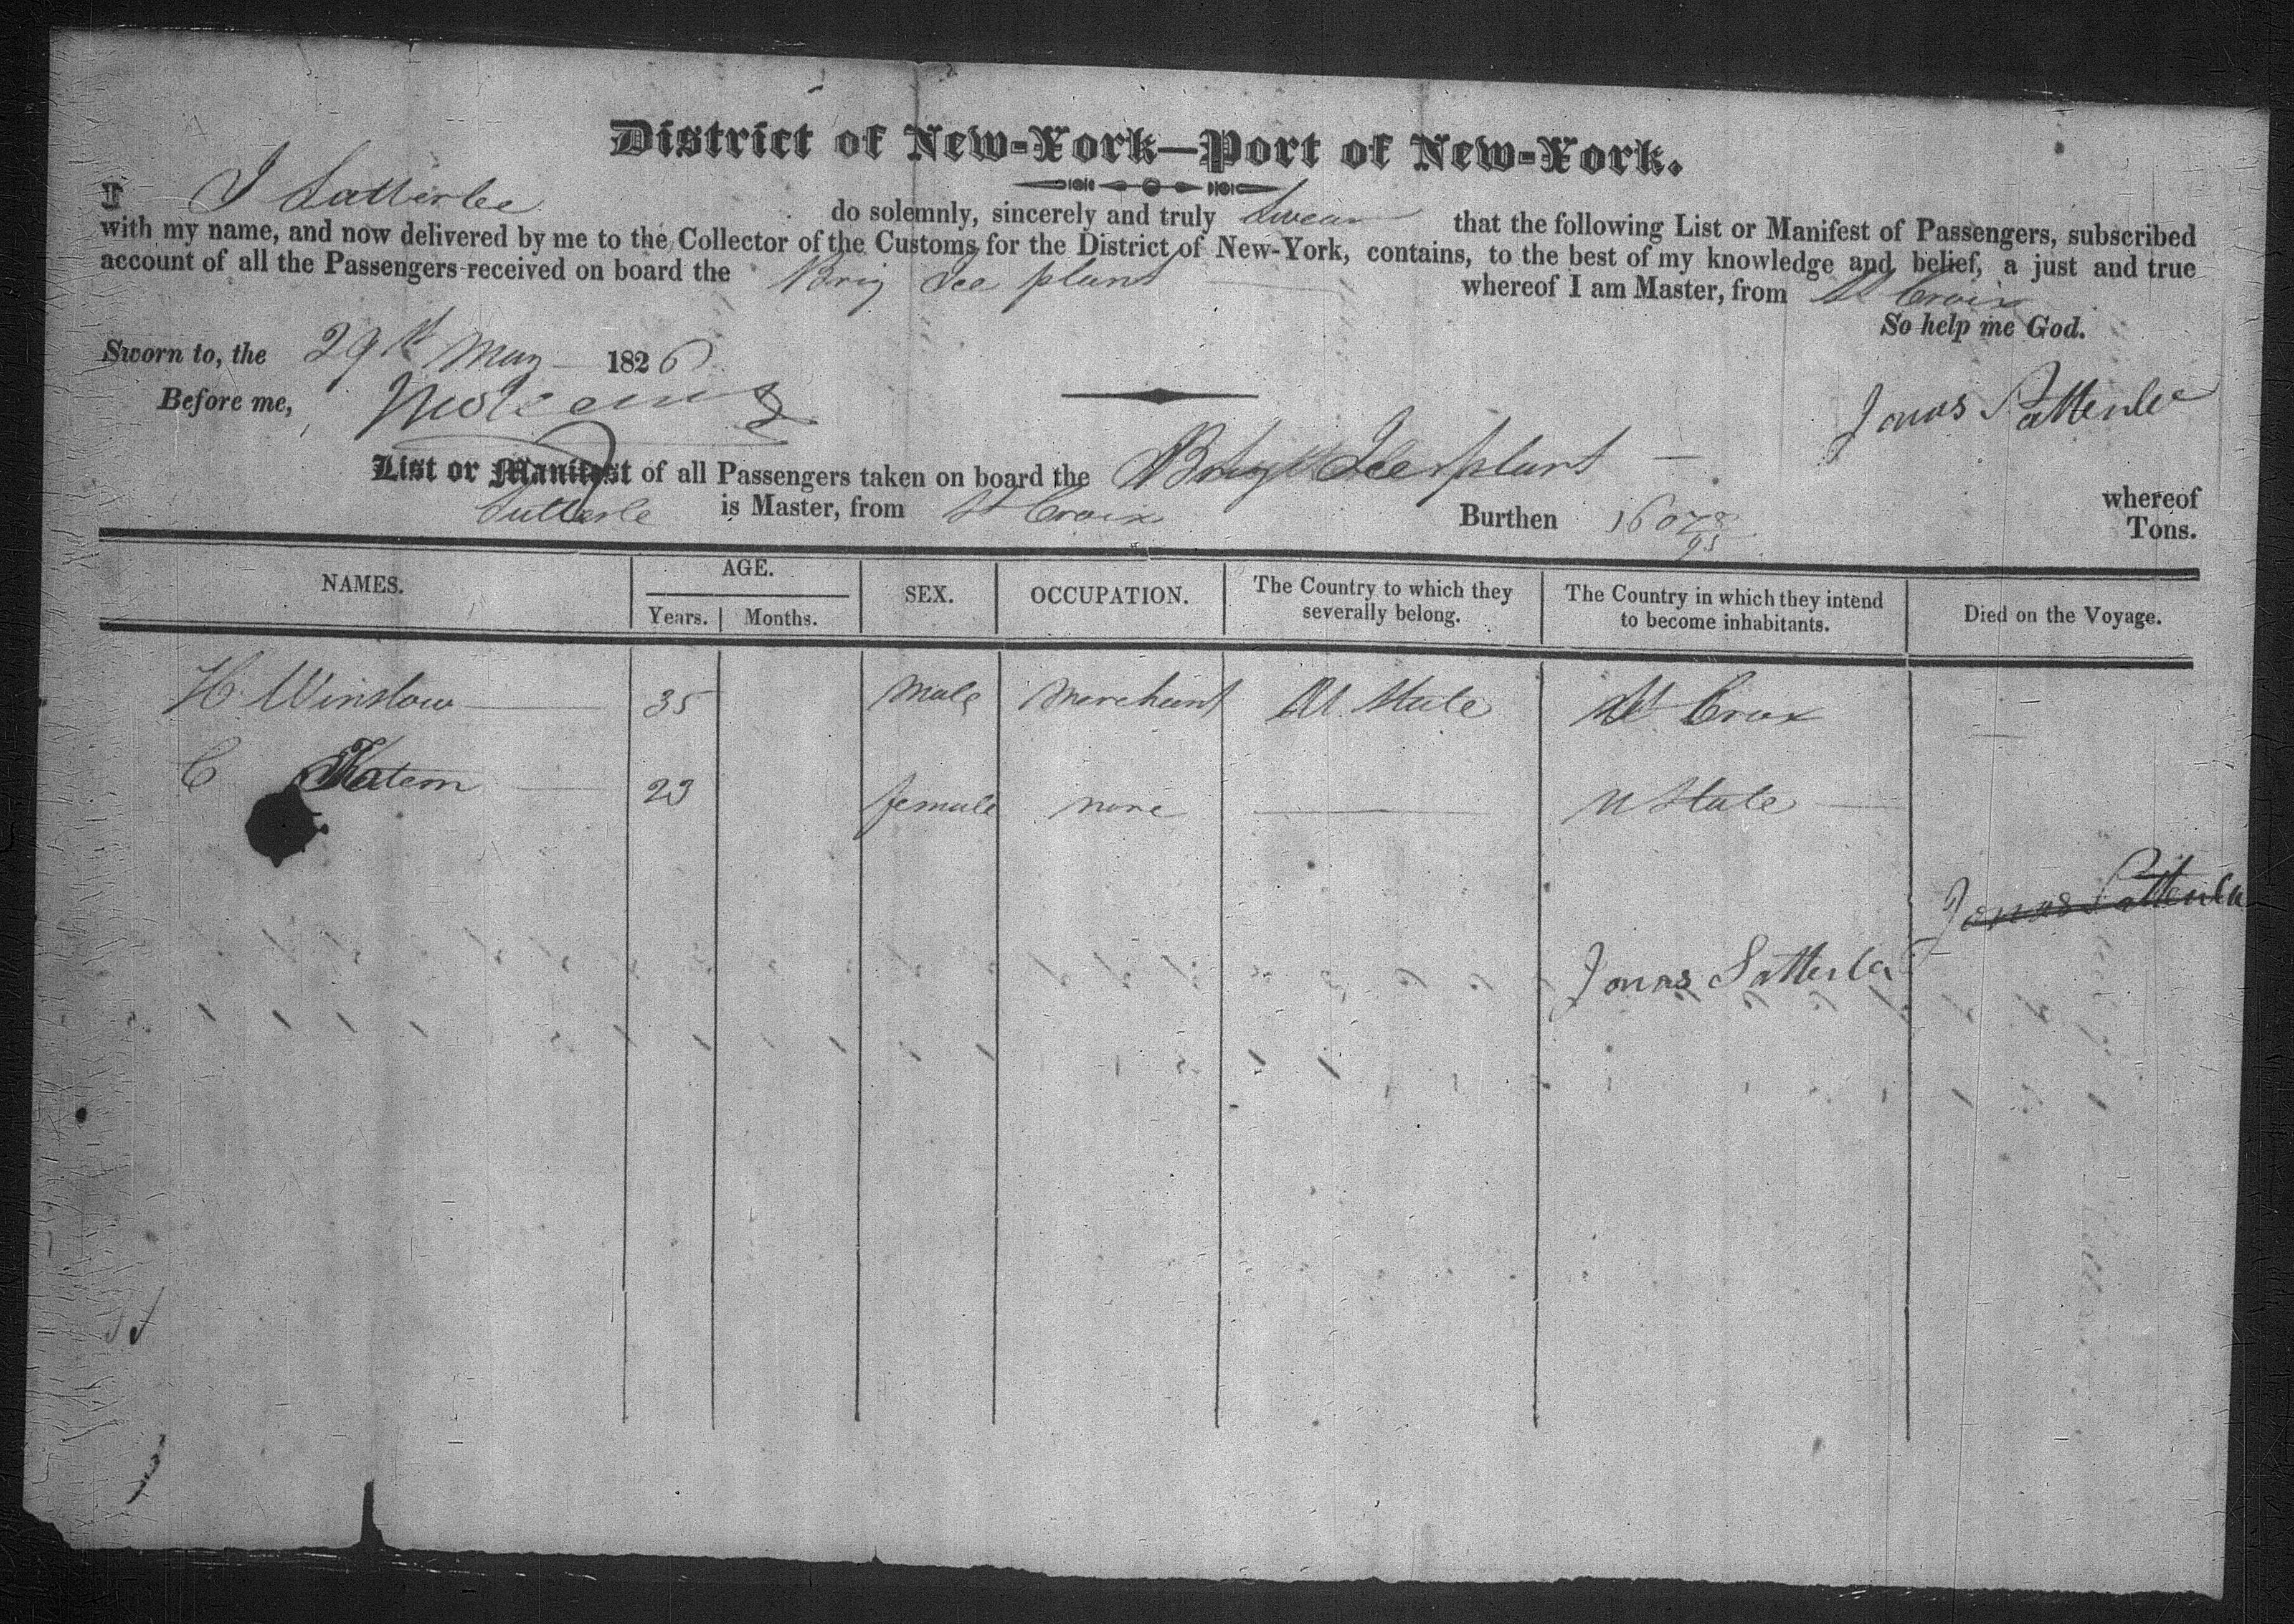 District of New-York—Port of New-York.
I J Satterlee do solemnly, sincerely and truly Swear that the following List or Manifest of Passengers, subscribed
with my name, and now delivered by me to the Collector of the Customs for the District of New-York, contains, to the best of my knowledge and belief, a just and true
account of all the Passengers received on board the Brig Ice plant whereof I am Master, from St Croix
So help me God.
Sworn to, the 29th May 1826
Before me,
Jonas Satterlee
List or Manifest of all Passengers taken on board the Brig Ice plant whereof
Sutterle is Master, from St Croix Burthen 160 78/95 Tons.
NAMES. AGE. SEX. OCCUPATION. The Country to which they severally belong. The Country in which they intend to become inhabitants. Died on the Voyage.
Years. Months.
H. Winslow 35 Male Merchant U. State St Croix
C 23 female none U State
Jonas Satterlee
Jonas Satterlee